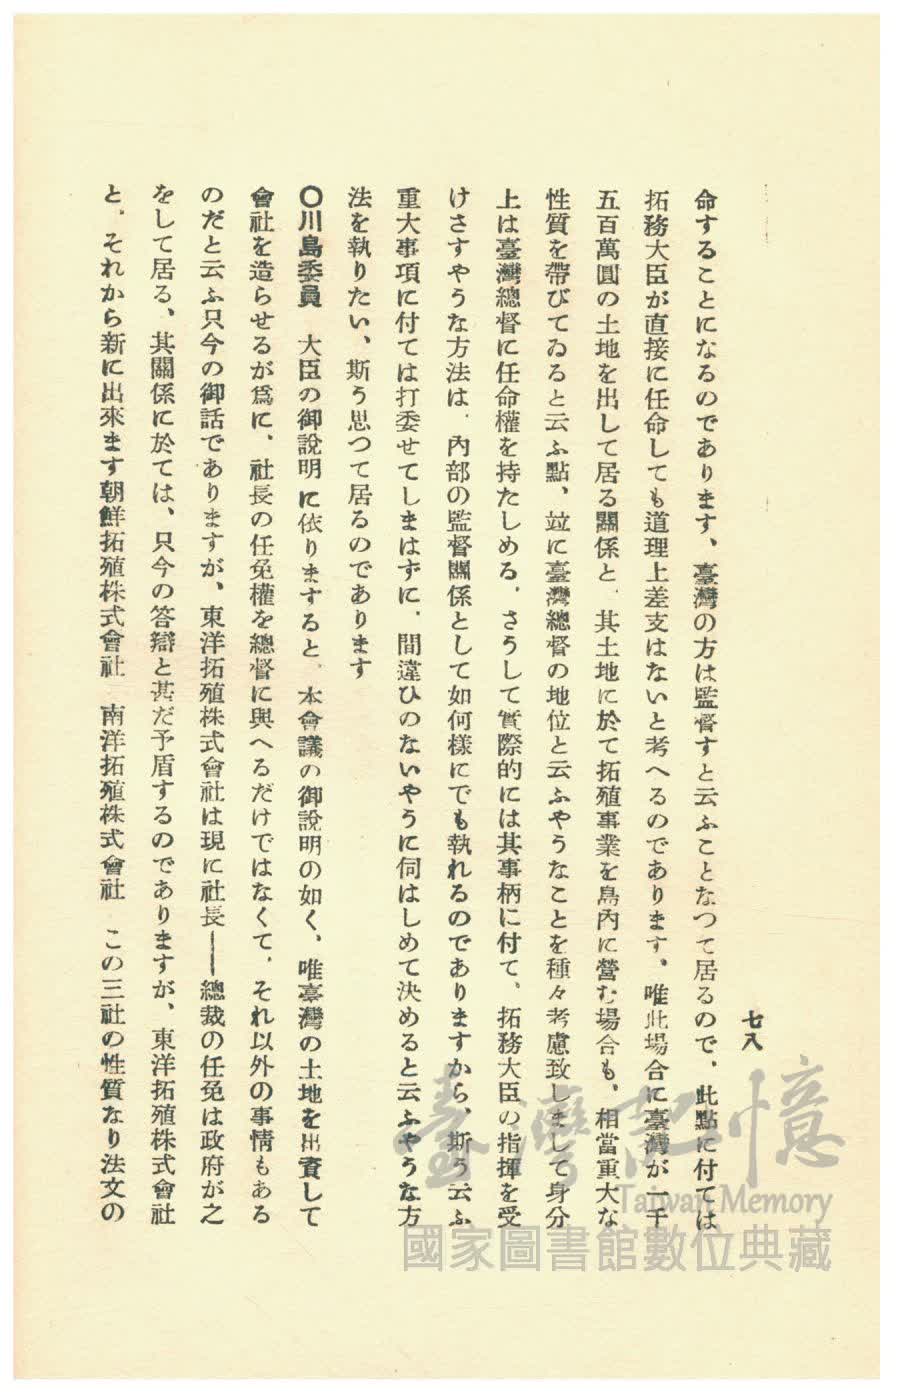 七八
命することになるのであります、臺灣の方は監督すと云ふことなつて居るので、此點に付ては
拓務大臣が直接に任命しても道理上差支はないと考へるのであります、唯此場合に臺灣が一千
五百萬圓の土地を出して居る關係と、其土地に於て拓殖事業を島內に營む場合も、相當重大な
性質を帶びてゐると云ふ點、竝に臺灣總督の地位と云ふやうなことを種々考慮致しまして身分
上は臺灣總督に任命權を持たしめる、さうして實際的には其事柄に付て、拓務大臣の指揮を受
けさすやうな方法は、內部の監督關係として如何樣にでも執れるのでありますから、斯う云ふ
重大事項に付ては打委せてしまはずに、間違ひのないやうに伺はしめて決めると云ふやうな方
法を執りたい、斯う思つて居るのであります
〇川島委員　大臣の御說明に依りますると、本會議の御說明の如く、唯臺灣の土地を出資して
會社を造らせるが爲に、社長の任免權を總督に與へるだけではなくて、それ以外の事情もある
のだと云ふ只今の御話でありますが、東洋拓殖株式會社は現に社長――總裁の任免は政府が之
をして居る、其關係に於ては、只今の答辯と甚だ予盾するのでありますが、東洋拓殖株式會社
と、それから新に出來ます朝鮮拓殖株式會社　南洋拓殖株式會社　この三社の性質なり法文の
臺灣記憶
Taiwan Memory
國家圖書館數位典藏